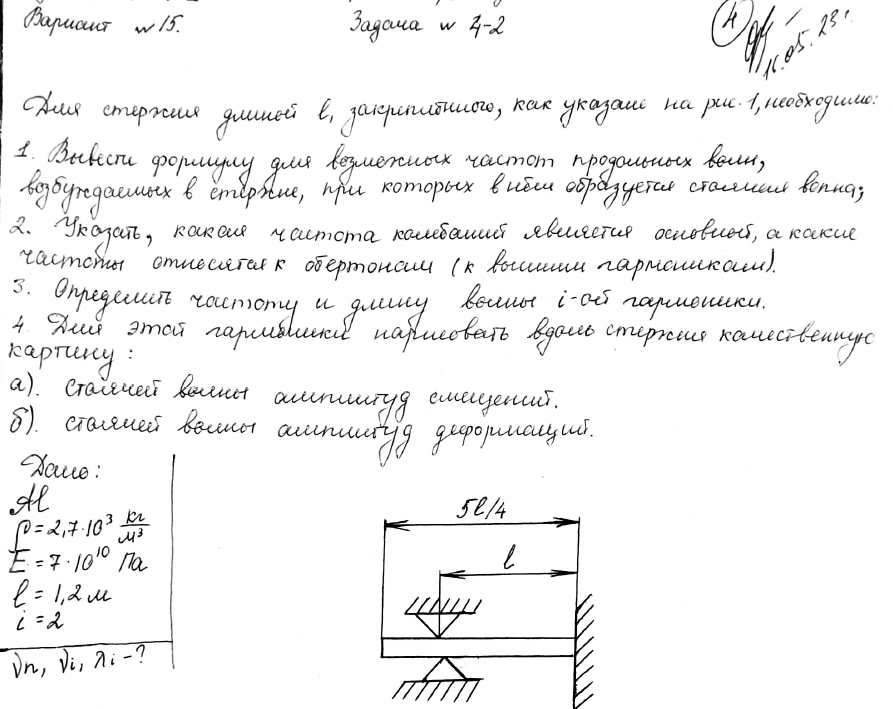 Вариант №15. Задача № 4-2
4
16.05.23г.
Для стержня длиной l, закреплённого, как указано на рис.1, необходимо:
1. Вывести формулу для возможных частот продольных волн,
возбуждаемых в стержне, при которых в нём образуется стоячая волна;
2. Указать, какая частота колебаний является основной, а какие
частоты относятся к обертонам (к высшим гармоникам).
3. Определить частоту и длину волны i-ой гармоники.
4. Для этой гармоники нарисовать вдоль стержня качественную
картину:
а). стоячей волны амплитуд смещений.
б). стоячей волны амплитуд деформаций.
Дано:
Al
ρ = 2,7·10³ кг/м³
E = 7·10¹⁰ Па
l = 1,2 м
i = 2
νn, νi, λi - ?
5l/4
l